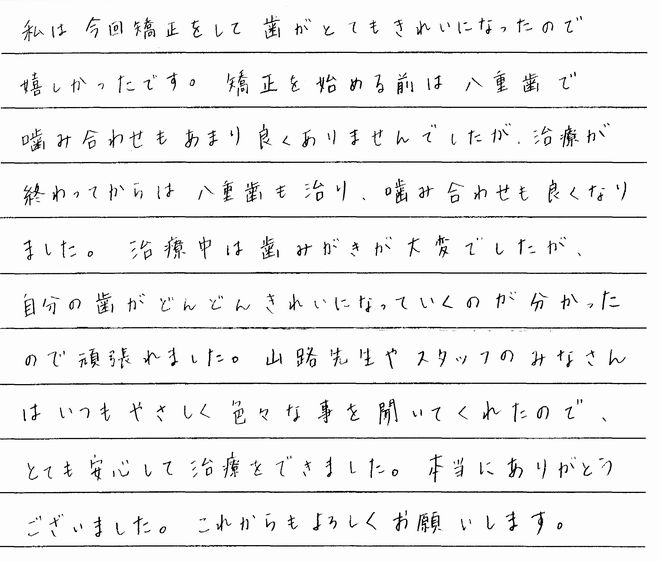 私は今回矯正をして歯がとてもきれいになったので
嬉しかったです。矯正を始める前は八重歯で
噛み合わせもあまり良くありませんでしたが、治療が
終わってからは八重歯も治り、噛み合わせも良くなり
ました。治療中は歯みがきが大変でしたが、
自分の歯がどんどんきれいになっていくのが分かった
ので頑張れました。山路先生やスタッフのみなさん
はいつもやさしく色々な事を聞いてくれたので、
とても安心して治療をできました。本当にありがとう
ございました。これからもよろしくお願いします。